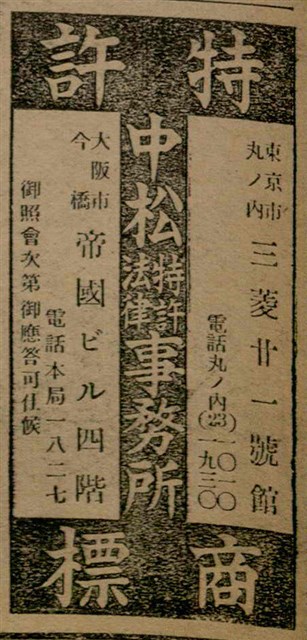 特許
東京市
丸ノ内
三菱廿一號館
電話丸ノ内(23)一〇一〇
一九三〇
中松特許法律事務所
大阪市
今橋
帝國ビル四階
電話本局一八二七
御照會次第御應答可仕候
商標